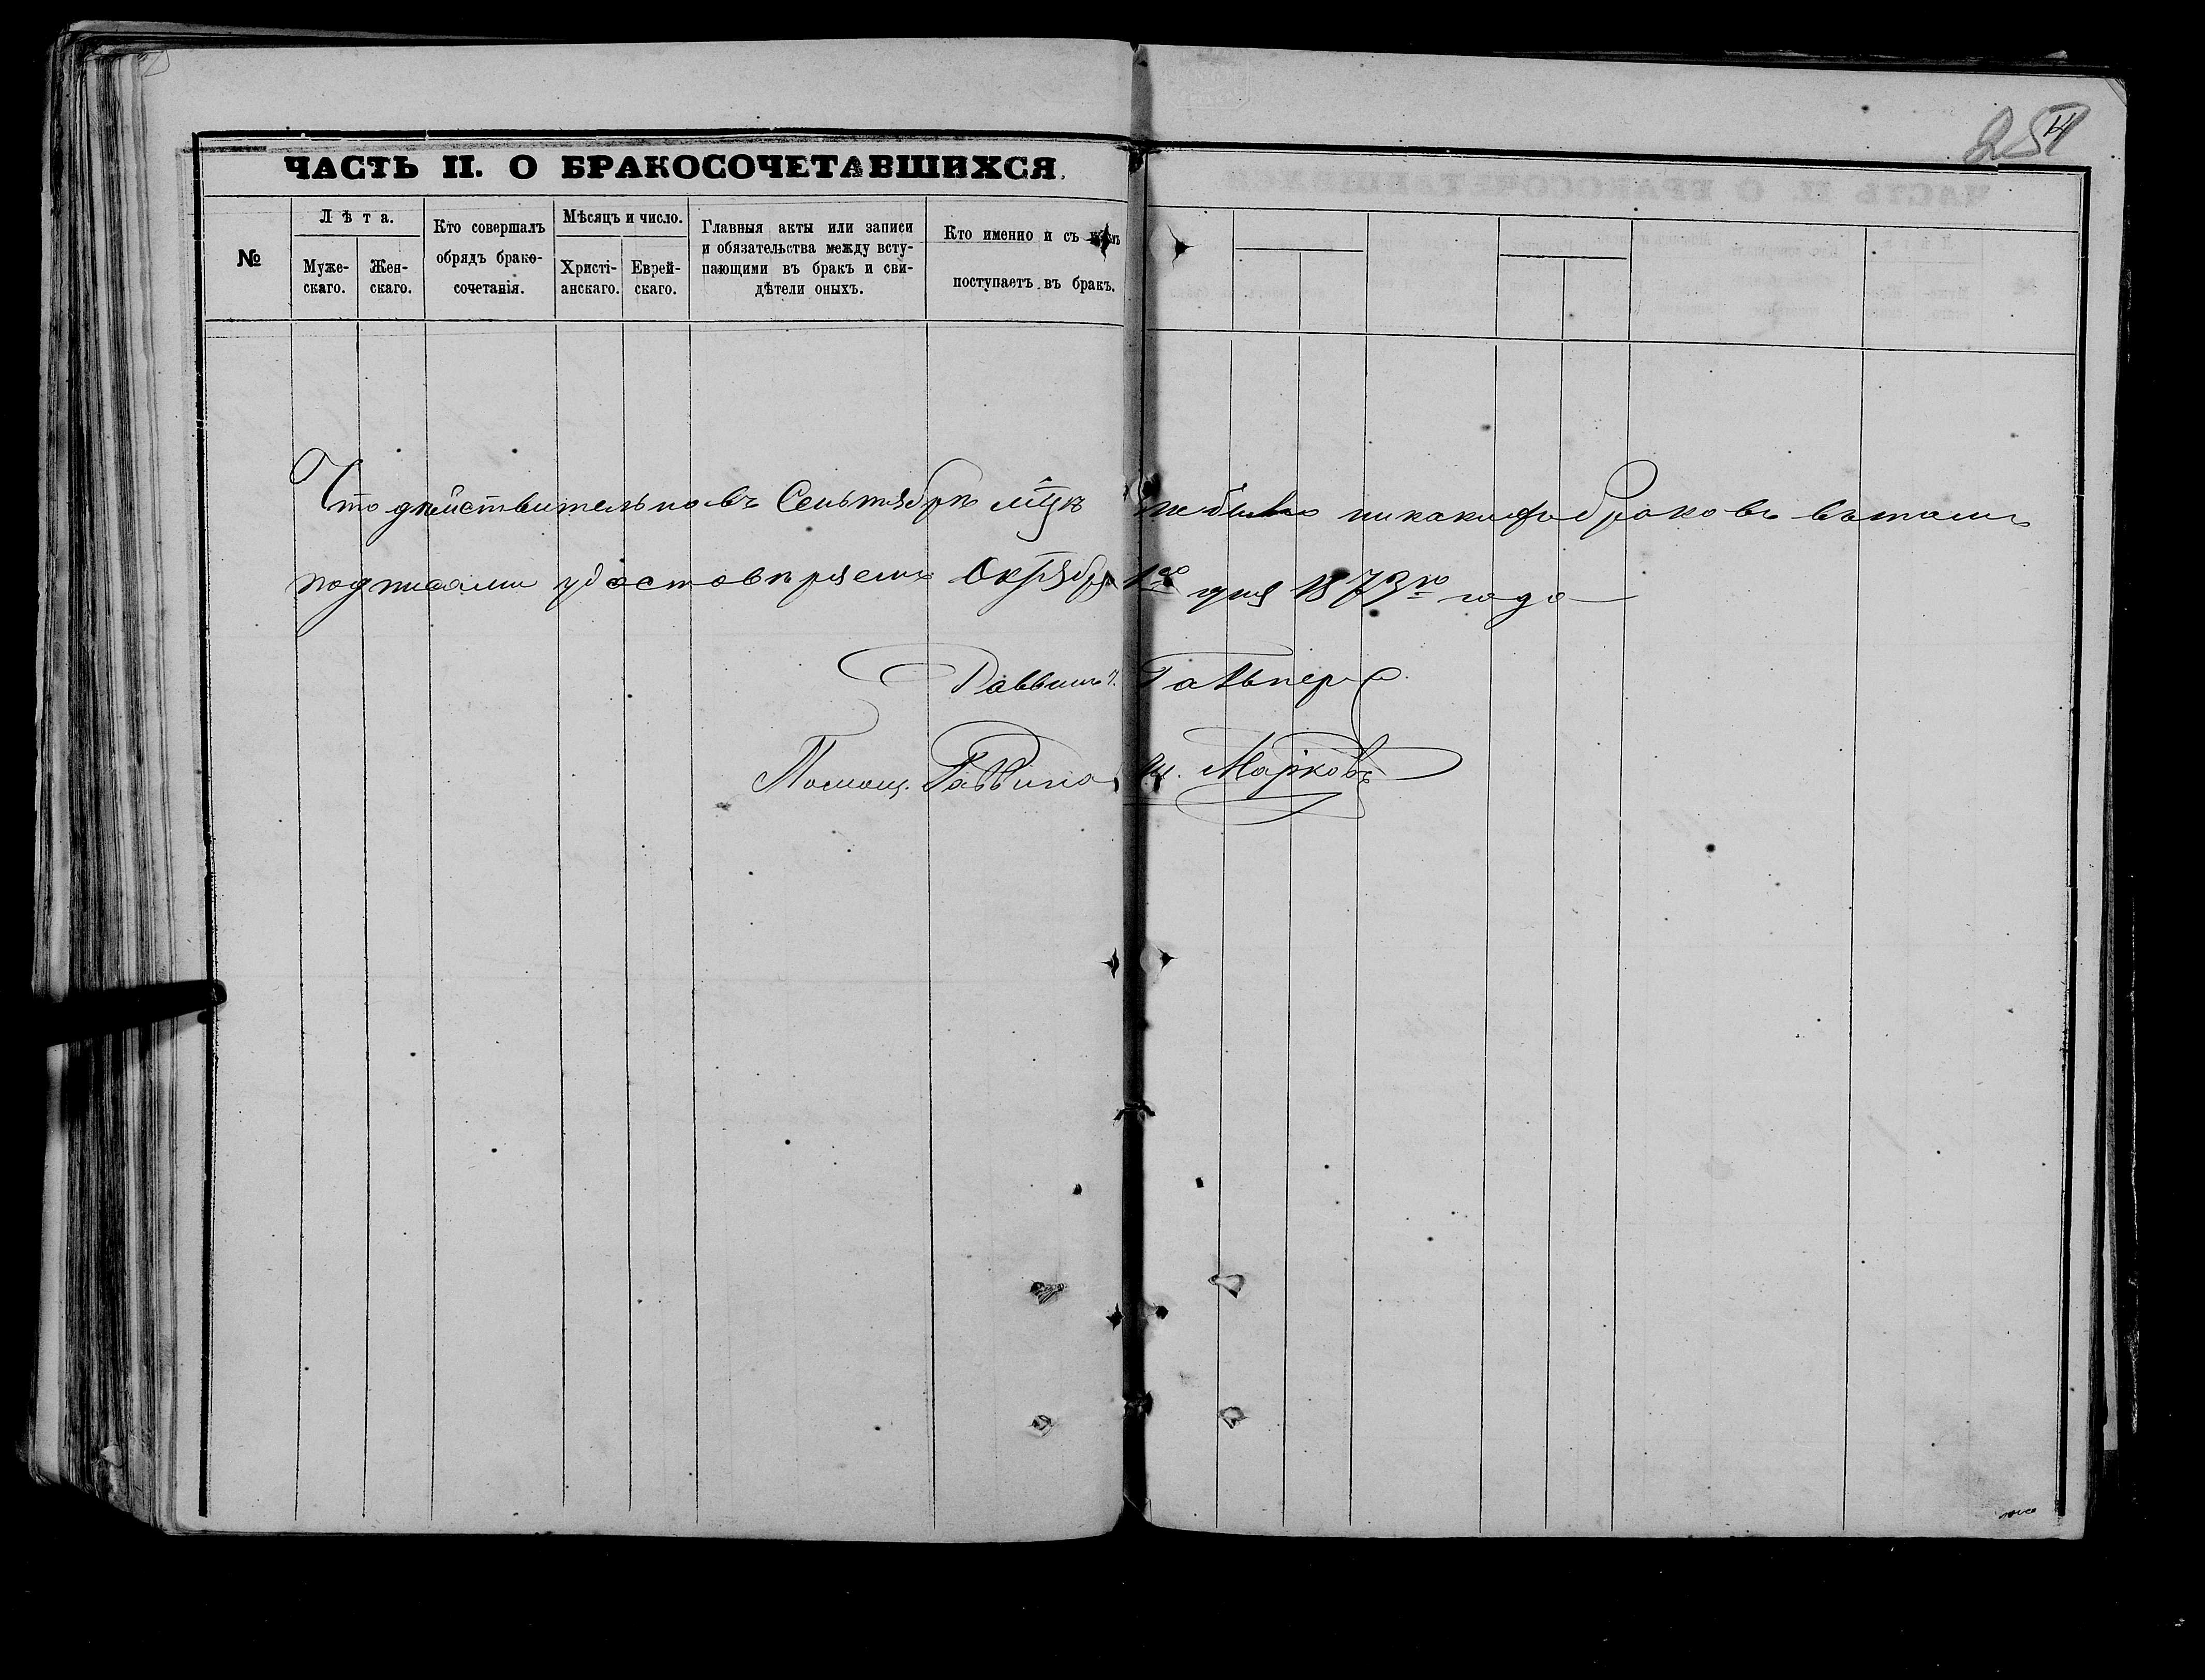 254
ЧАСТЬ II. О БРАКОСОЧЕТАВШИХСЯ.
№
Лѣта.
Муже-
скаго.
Жен-
скаго.
Кто совершалъ
обрядъ брако-
сочетанія.
Мѣсяцъ и число.
Христі-
анскаго.
Еврей-
скаго.
Главныя акты или записи
и обязательства между всту-
пающими въ бракъ и сви-
дѣтели оныхъ.
Кто именно и съ кѣмъ
поступаетъ въ бракъ.
Что дѣйствительно въ Сентябрѣ м-цѣ небыло никакихъ браковъ въ томъ
подписями удостовѣряемъ Октября 1го дня 1873го года
Раввинъ Гальперъ
Помощ. Раввина Ш. Марковъ